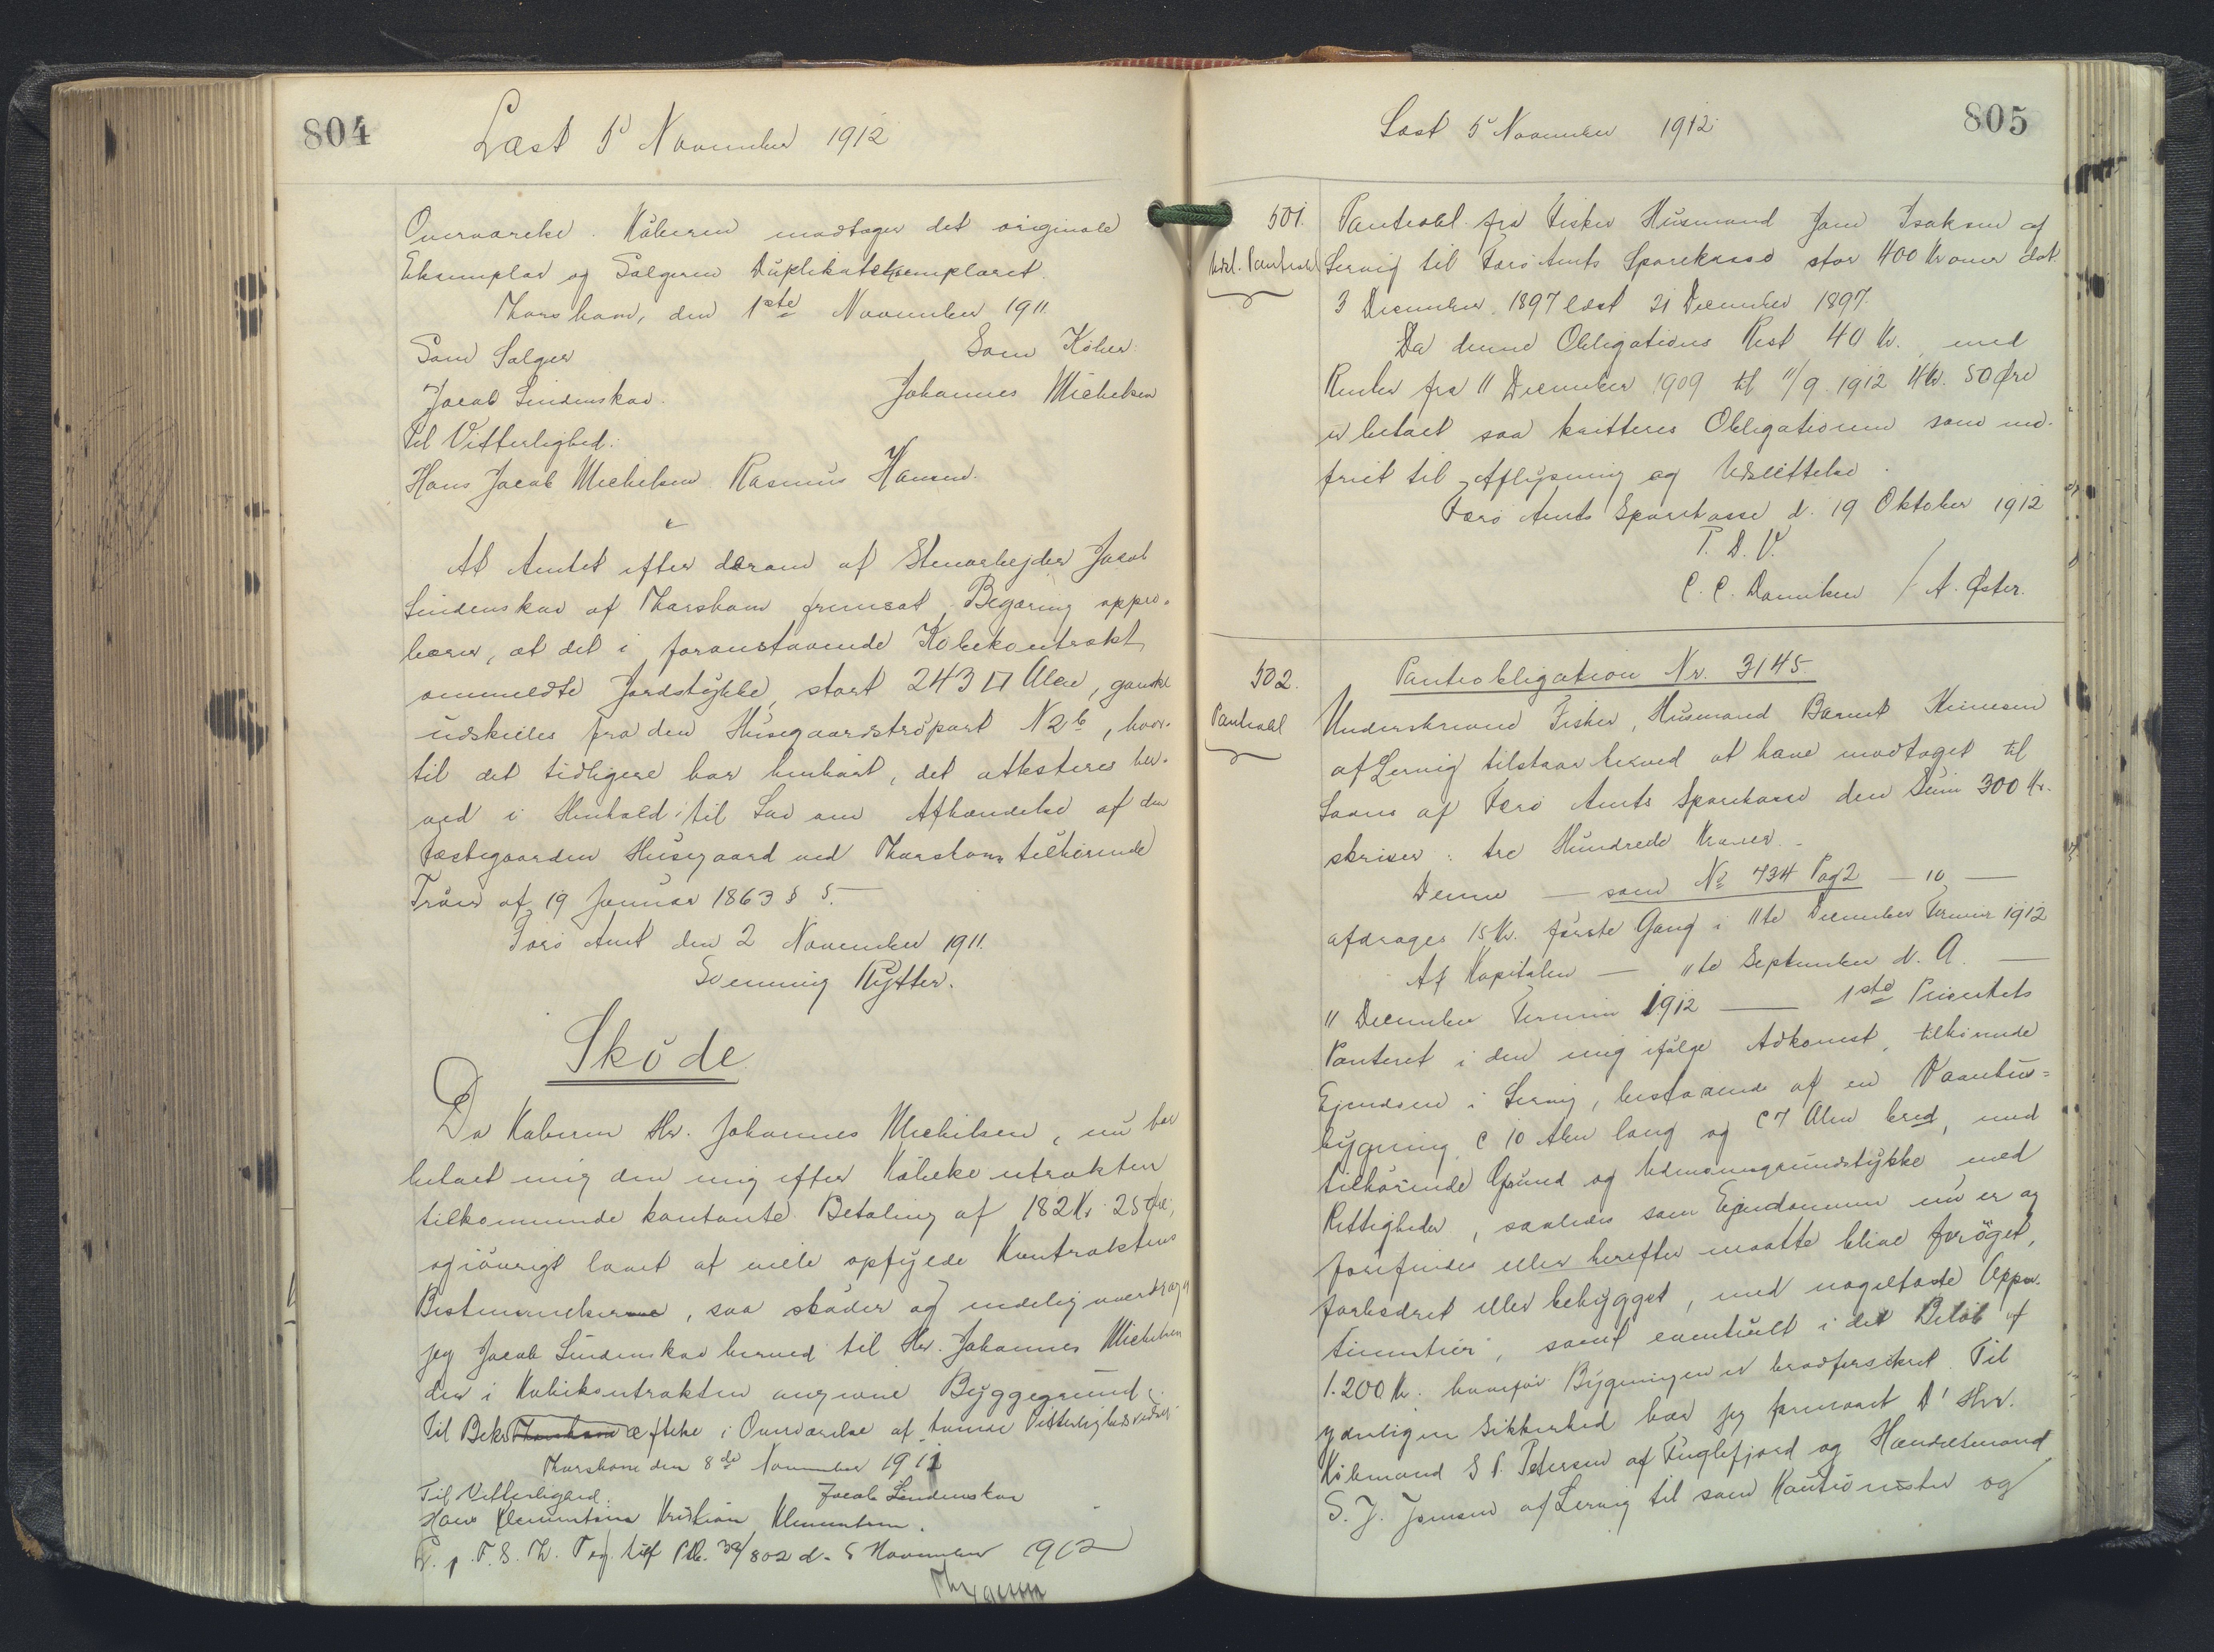 804
Læst 5' November 1912
Overværelse. Køberen modtager det originale
Eksemplar og Sælgeren Duplikateksemplaret.
Thorshavn, den 1ste November 1911.
Som Sælger Som Køber:
Jacob Lindenskov. Johannes Michelsen
Til Vitterlighed:
Hans Jacob Michelsen. Rasmus Hansen.
At Amtet efter derom af Stenarbejder Jacob
Lindenskov af Thorshavn fremsat Begæring appro-
berer, at det i foranstaaende Købekontrakt
ommeldte Jordstykke, stort 243 □ Alen, ganske
udskilles fra den Husegaardstrøpart N 2b, hvor-
til det tidligere har henhørt, det attesteres her-
ved i Henhold til Lov om Afhændelse af den
Fæstegaarden Husegaard ved Thorshavn tilhørende
Trøer af 19 Januar 1863 § 5.
Færø Amt den 2 November 1911.
Svenning Rytter.
Skøde
Da Køberen Hr. Johannes Michelsen, nu har
betalt mig den mig efter Købekontrakten
tilkommende kontante Betaling af 182 Kr. 25 Øre,
og iøvrigt lovet at ville opfylde Kontraktens
Bestemmelserne, saa skøder og endelig overdrager
jeg Jacob Lindenskov herved til Hr. Johannes Michelsen
den i Købekontrakten angivne Byggegrund.
Til Bekræftelse i Overværelse af tvende Vitterlighedsvidner
Thorshavn den 8de November 1912
Til Vitterlighed: Jacob Lindenskov
Hans Klementsen Kristian Klementsen.
F. S. Th. Tog. lit PB. 39/802 d. 5 November 1912
805
Læst 5' November 1912
501.
Udsl. Panteobl
Panteobl. fra Fisker Husmand Joen Isaksen af
Lervig til Færø Amts Sparekasse stor 400 Kroner dat.
3 December 1897 læst 21 December 1897.
Da denne Obligations Rest 40 Kr. med
Renter fra 11 December 1909 til 11/9 1912 4 Kr. 50 Øre
er betalt saa kvitteres Obligationen som ind-
friet til Aflysning og Udslettelse.
Færø Amts Sparekasse d. 19 Oktober 1912
P. D. V.
C. C. Danielsen / A. Øster.
502.
Panteobl
Panteobligation Nr. 3145.
Underskrevne Fisker, Husmand Berent Heinesen
af Lervig tilstaar herved at have modtaget til
Laans af Færø Amts Sparekasse den Sum 300 Kr.
skriver: tre Hundrede Kroner.
Denne — som No 734 Pag 2 — 10 —
afdrages 15 Kr. første Gang i 11te December Termin 1912
Af Kapitalen — 11te September d. A. —
11 December Termin 1912 — 1ste Prioritets
Panteret i den mig ifølge Adkomst, tilhørende
Ejendom i Lervig, bestaaende af en Vaanhus-
bygning, c 10 Alen lang og c 7 Alen bred, med
tilhørende Grund og Udmarksgrundstykke, med
Rettigheder, saaledes som Ejendommen nu er og
forefindes eller herefter maatte blive forøget,
forbedret eller bebygget, med nagelfaste Apper-
tinentier, samt eventuelt i det Beløb af
1.200 Kr. hvorfor Bygningen er brandforsikret. Til
yderligere Sikkerhed har jeg formaaet D' Hrr.
Købmand S. P. Petersen af Fuglefjord og Handelsmand
S. J. Jensen af Lervig til som Kautionister og